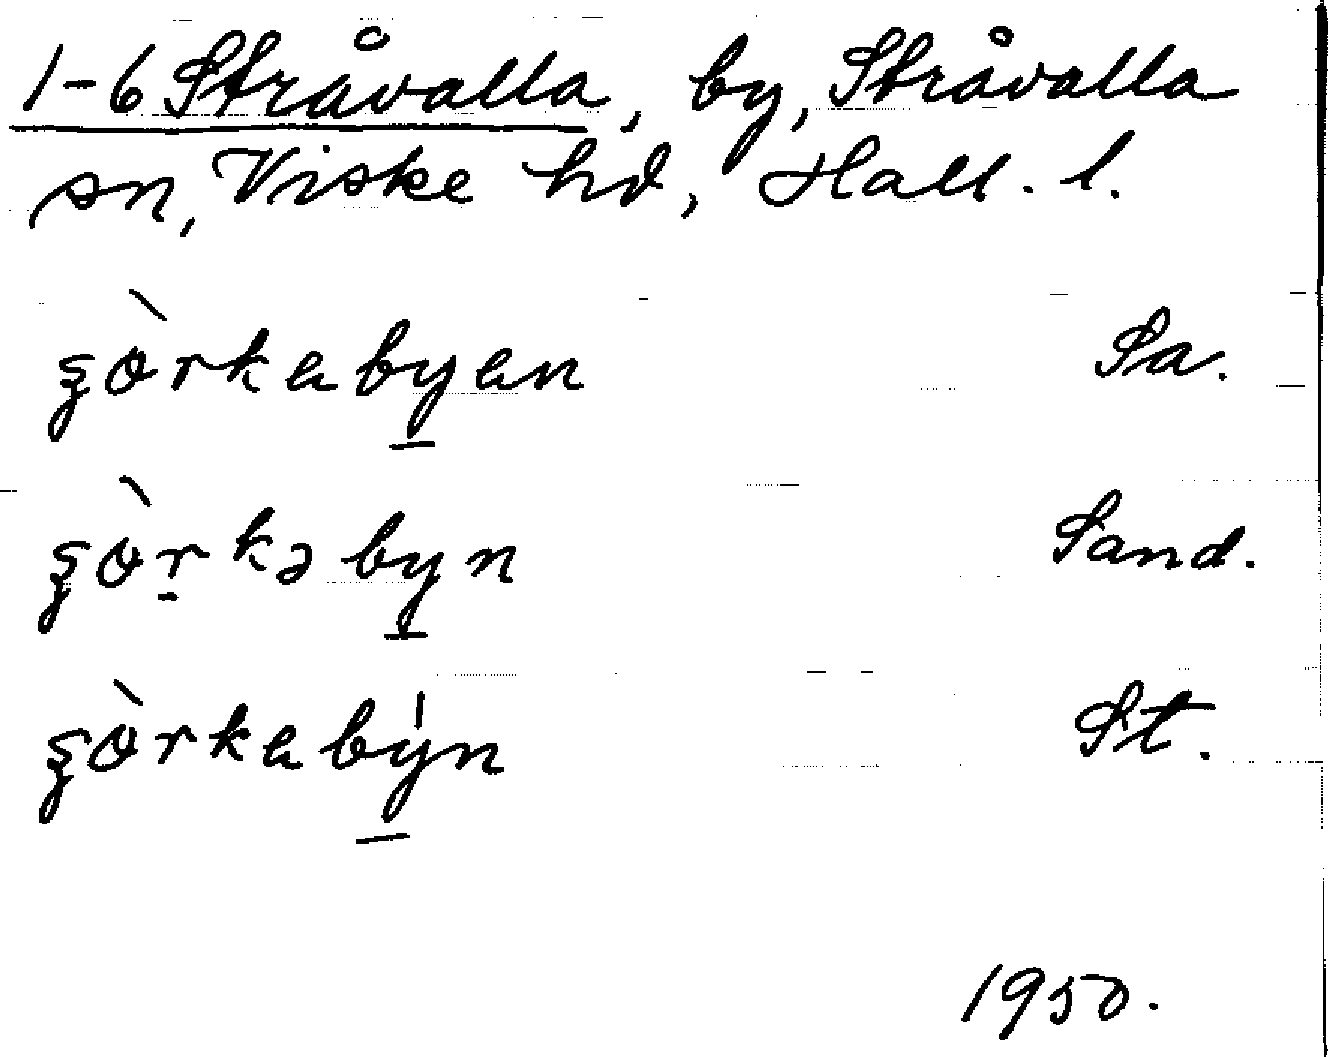 1-6 Stråvalla, by, Stråvalla
sn, Viske hd, Hall. l.
ʂòrkabyan Sa.
ʂòrkəbyn Sand.
ʂòrkabýn St.
1950.